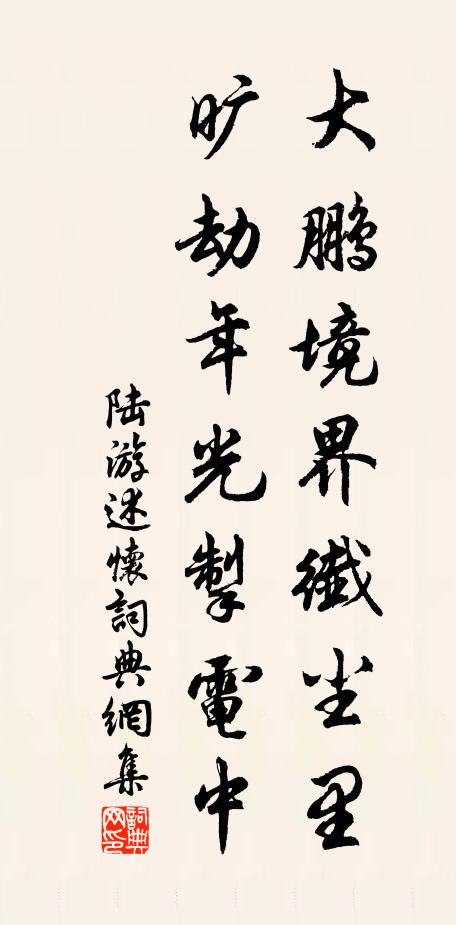 大鹏境界纖尘里
旷劫年光掣電中
陆游述懷詞典網集
詞典网印